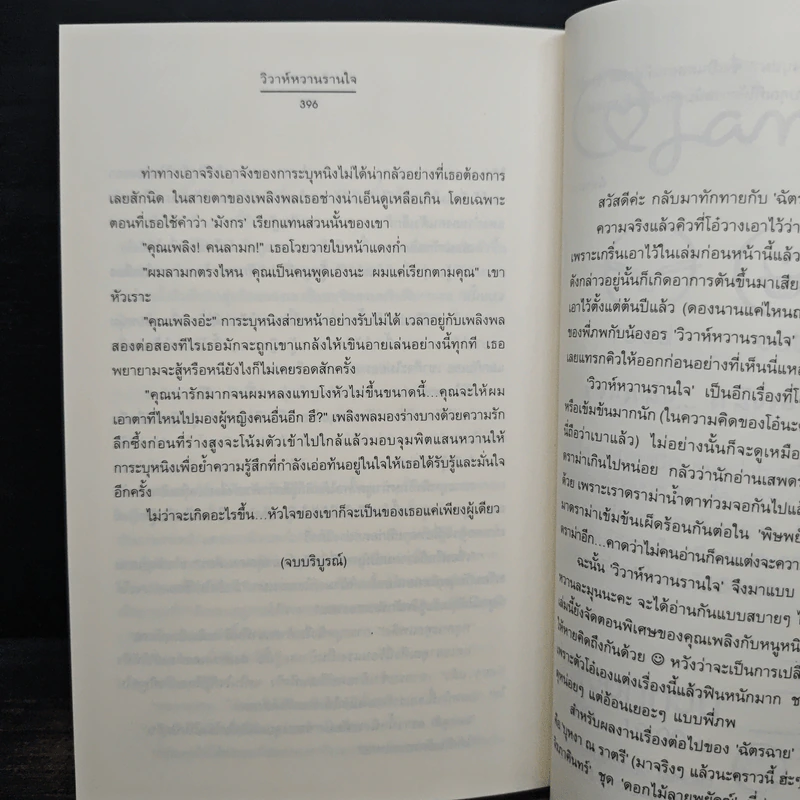 วิวาห์หวานรานใจ
396
ท่าทางเอาจริงเอาจังของการะบุหนิงไม่ได้น่ากลัวอย่างที่เธอต้องการ
เลยสักนิด ในสายตาของเพลิงพลเธอช่างน่าเอ็นดูเหลือเกิน โดยเฉพาะ
ตอนที่เธอใช้คำว่า 'มังกร' เรียกแทนส่วนนั้นของเขา
"คุณเพลิง! คนลามก!" เธอโวยวายใบหน้าแดงก่ำ
"ผมลามกตรงไหน คุณเป็นคนพูดเองนะ ผมแค่เรียกตามคุณ" เขา
หัวเราะ
"คุณเพลิงอ่ะ" การะบุหนิงส่ายหน้าอย่างรับไม่ได้ เวลาอยู่กับเพลิงพล
สองต่อสองทีไรเธอมักจะถูกเขาแกล้งให้เขินอายเล่นอย่างนี้ทุกที เธอ
พยายามจะสู้หรือหนียังไงก็ไม่เคยรอดสักครั้ง
"คุณน่ารักมากจนผมหลงแทบโงหัวไม่ขึ้นขนาดนี้...คุณจะให้ผม
เอาตาที่ไหนไปมองผู้หญิงคนอื่นอีก ฮึ?" เพลิงพลมองร่างบางด้วยความรัก
ลึกซึ้งก่อนที่ร่างสูงจะโน้มตัวเข้าไปใกล้แล้วมอบจุมพิตแสนหวานให้
การะบุหนิงเพื่อย้ำความรู้สึกที่กำลังเอ่อท้นอยู่ในใจให้เธอได้รับรู้และมั่นใจ
อีกครั้ง
ไม่ว่าจะเกิดอะไรขึ้น...หัวใจของเขาก็จะเป็นของเธอแค่เพียงผู้เดียว
(จบบริบูรณ์)
สวัสดีค่ะ กลับมาทักทายกับ 'ฉัตรฉาย'
ความจริงแล้วคิวที่โอ๋วางเอาไว้ว่า
เพราะเกริ่นเอาไว้ในเล่มก่อนหน้านี้แล้ว
ดังกล่าวอยู่นั้นก็เกิดอาการตันขึ้นมาเสีย
เอาไว้ตั้งแต่ต้นปีแล้ว (ดองนานแค่ไหน
ของพี่ภพกับน้องอร 'วิวาห์หวานรานใจ'
เลยแทรกคิวให้ออกก่อนอย่างที่เห็นนี่แหละ
'วิวาห์หวานรานใจ' เป็นอีกเรื่องที่
หรือเข้มข้นมากนัก (ในความคิดของโอ๋นะ
นี่ถือว่าเบาแล้ว) ไม่อย่างนั้นก็จะดูเหมือ
ดราม่าเกินไปหน่อย กลัวว่านักอ่านเสพ
ด้วย เพราะเราดราม่าน้ำตาท่วมจอกันไปแล้
มาดราม่าเข้มข้นเผ็ดร้อนกันต่อใน
ดราม่าอีก...คาดว่าไม่คนอ่านก็คนแต่งจะ
ฉะนั้น 'วิวาห์หวานรานใจ' จึงมาแบบ
หวานละมุนนะคะ จะได้อ่านกันแบบสบายๆ
เล่มนี้ยังจัดตอนพิเศษของคุณเพลิงกับหนูหนิ
ให้หายคิดถึงกันด้วย ☺ หวังว่าจะเป็นการ
เพราะตัวโอ๋เองแต่งเรื่องนี้แล้วฟินหนักมาก
ดุหน่อยๆ แต่อ้อนเยอะๆ แบบพี่ภพ
สำหรับผลงานเรื่องต่อไปของ 'ฉัตรฉาย'
ณ ราตรี' (มาจริงๆ แล้วนะคราวนี้
ชุด